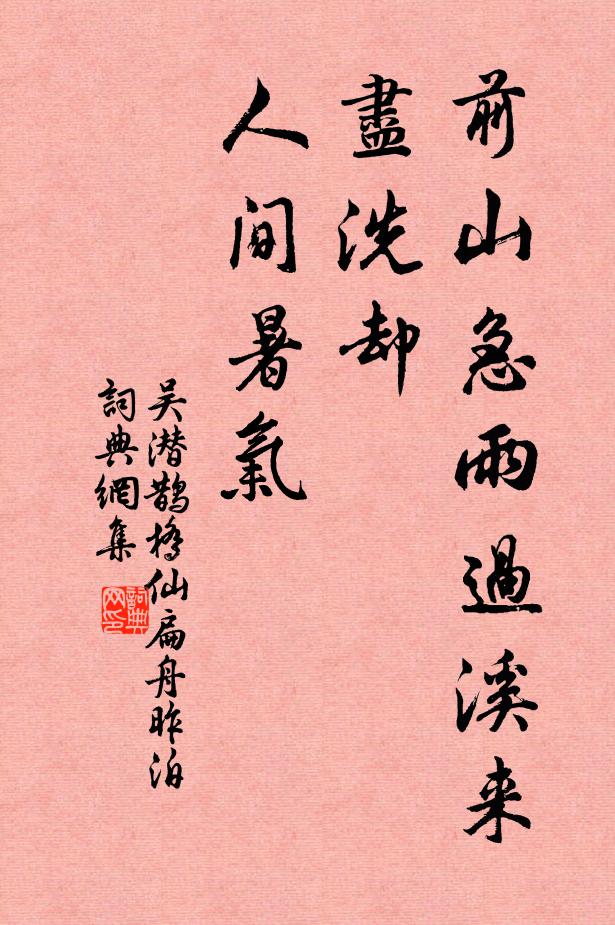 前山急雨過溪来
盡洗却
人間暑氣
吴潜鵲橋仙扁舟昨泊
詞典網集
詞典网印